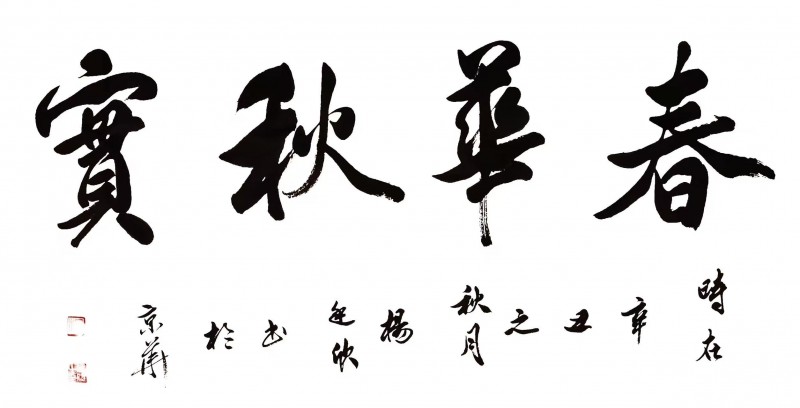 春華秋實
時在辛丑之秋月楊延欣书於京華